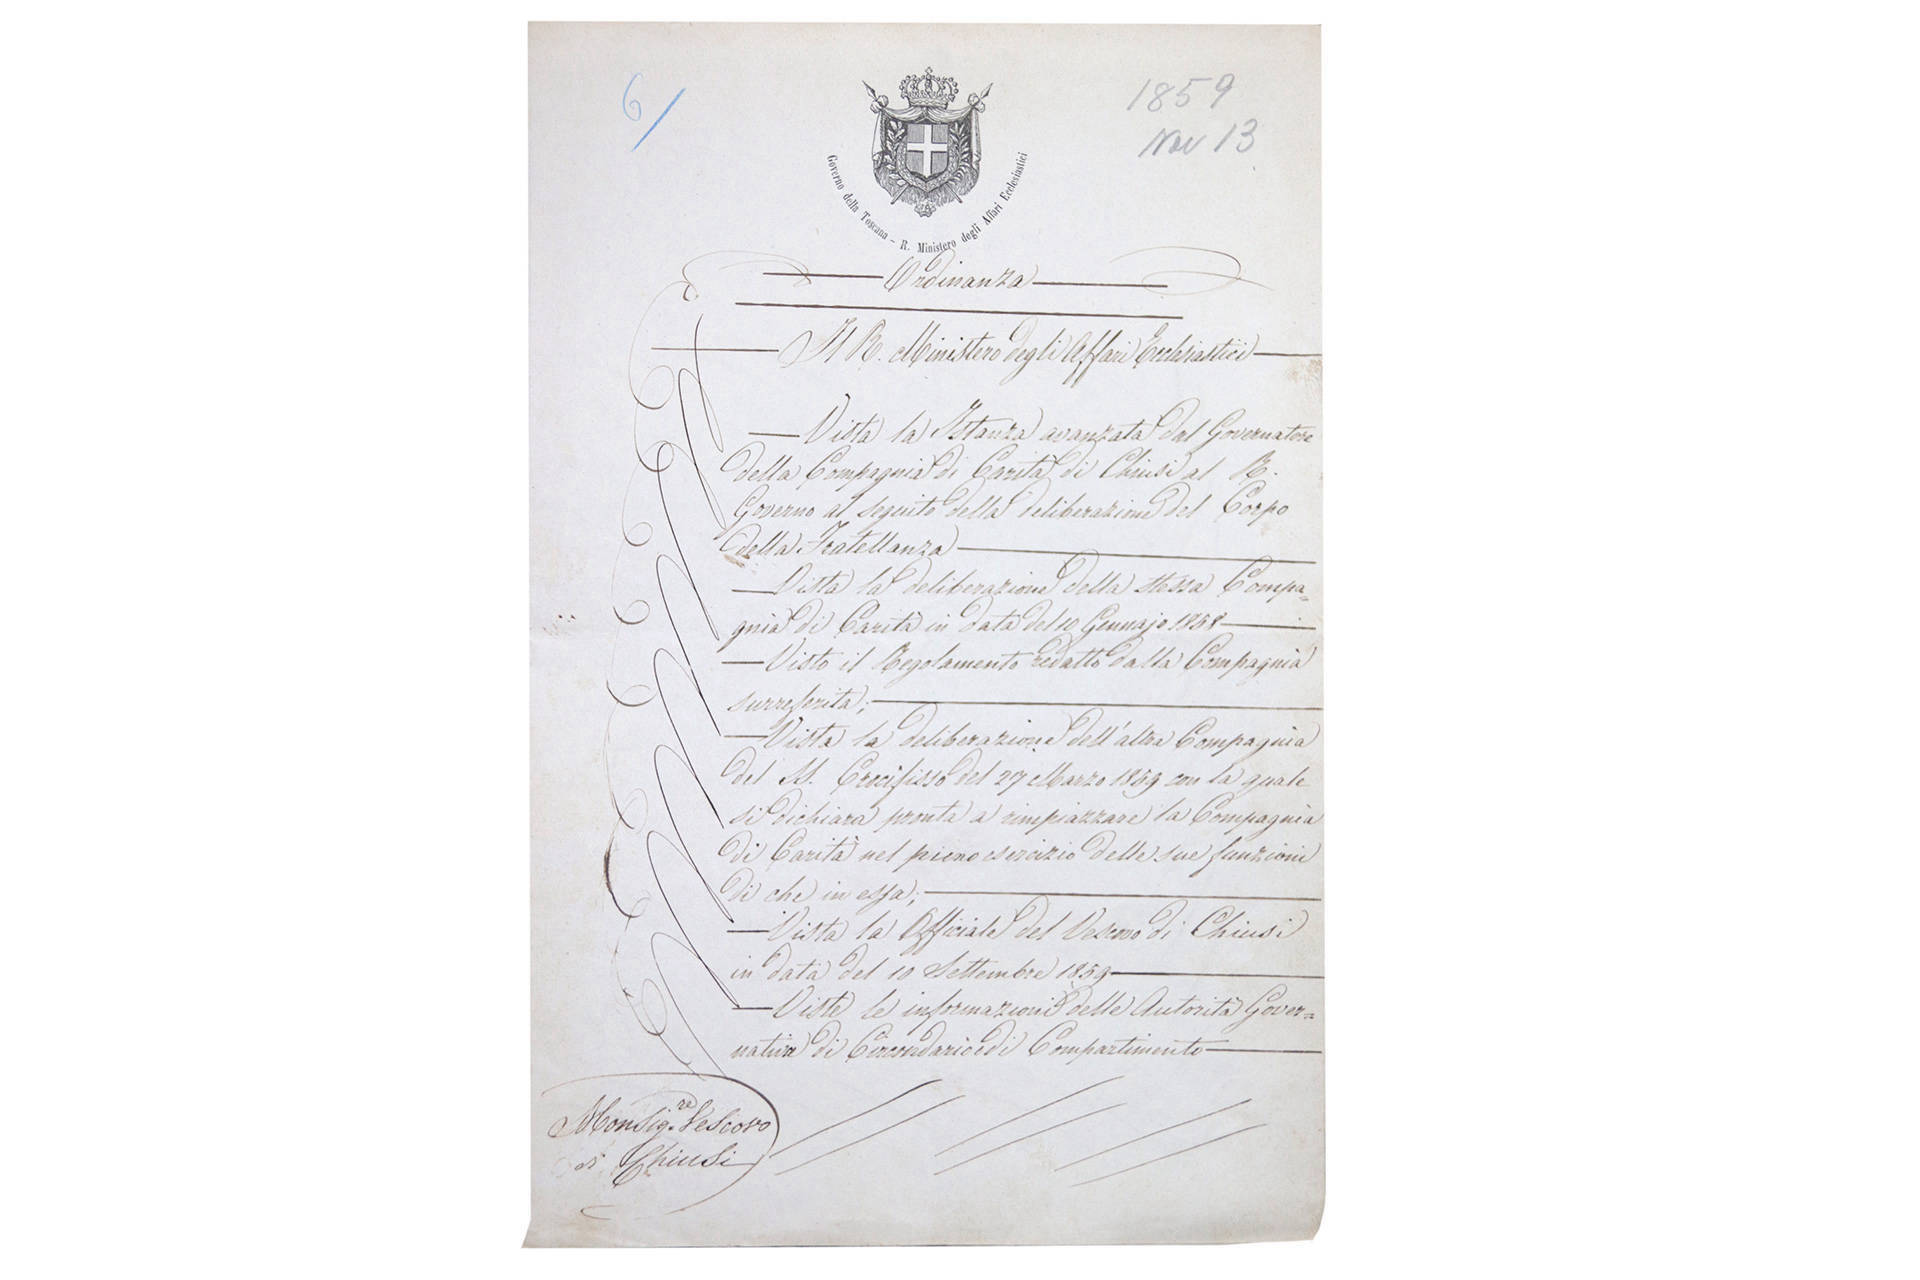 6/
1859
Nov 13
Governo della Toscana – R. Ministero degli Affari Ecclesiastici
Ordinanza
Il R. Ministero degli Affari Ecclesiastici
Vista la Istanza avanzata dal Governatore
della Compagnia di Carità di Chiusi al R.
Governo al seguito della deliberazione del Corpo
della Fratellanza
Vista la deliberazione della stessa Compa=
gnia di Carità in data del 10 Gennajo 1858
Visto il Regolamento redatto dalla Compagnia
surreferita;
Vista la deliberazione dell'altra Compagnia
del SS. Crocifisso del 27 Marzo 1859 con la quale
si dichiara pronta a rimpiazzare la Compagnia
di Carità nel pieno esercizio delle sue funzioni
di che in essa;
Vista la Officiale del Vescovo di Chiusi
in data del 10 Settembre 1859
Viste le informazioni delle Autorità Gover=
native di Circondario e di Compartimento
Monsig.re Vescovo
di Chiusi